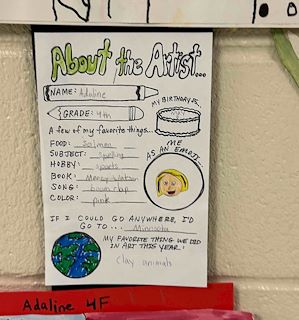 About the Artist...
NAME: Adaline
MY BIRTHDAY IS..
GRADE: 4th
A few of my favorite things...
FOOD: Salmon
SUBJECT: Spelling
HOBBY: sports
BOOK: Mercy Watson
SONG: boom clap
COLOR: pink
ME
AS AN EMOJI...
IF I COULD GO ANYWHERE, I'D
GO TO... Minnesota
MY FAVORITE THING WE DID
IN ART THIS YEAR:
clay animals
Adaline 4F